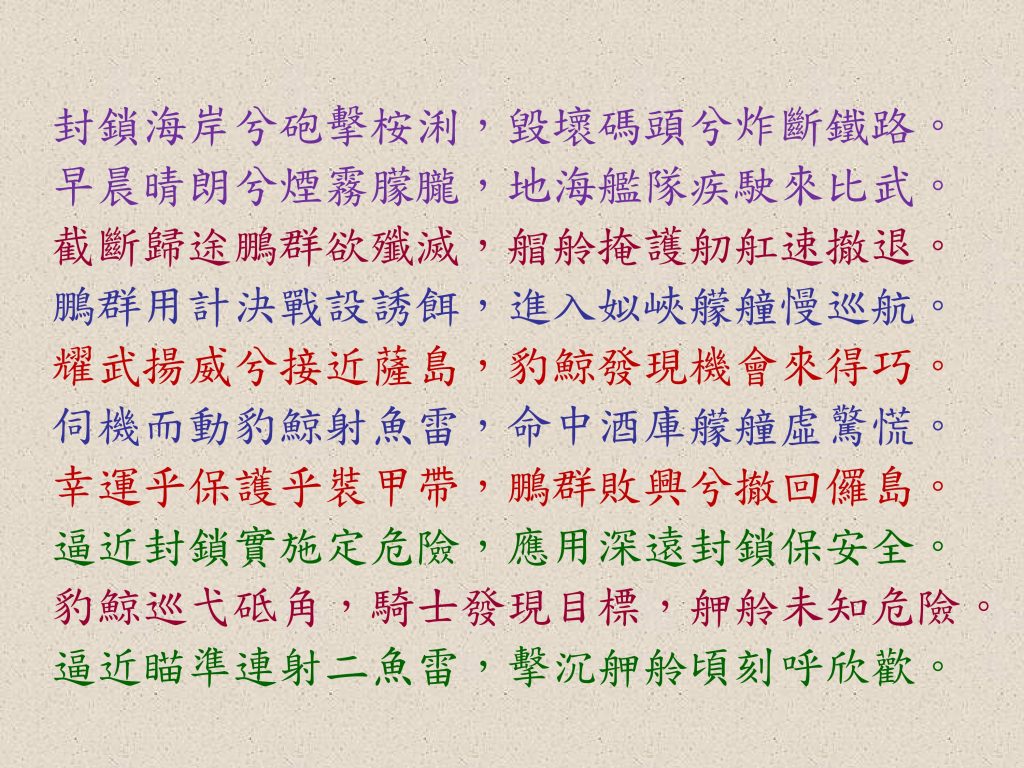 封鎖海岸兮砲擊桉浰，毀壞碼頭兮炸斷鐵路。
早晨晴朗兮煙霧朦朧，地海艦隊疾駛來比武。
截斷歸途鵬群欲殲滅，艒舲掩護舠舡速撤退。
鵬群用計決戰設誘餌，進入姒峽艨艟慢巡航。
耀武揚威兮接近薩島，豹鯨發現機會來得巧。
伺機而動豹鯨射魚雷，命中酒庫艨艟虛驚慌。
幸運乎保護乎裝甲帶，鵬群敗興兮撤回儸島。
逼近封鎖實施定危險，應用深遠封鎖保安全。
豹鯨巡弋砥角，騎士發現目標，舺舲未知危險。
逼近瞄準連射二魚雷，擊沉舺舲頃刻呼欣歡。